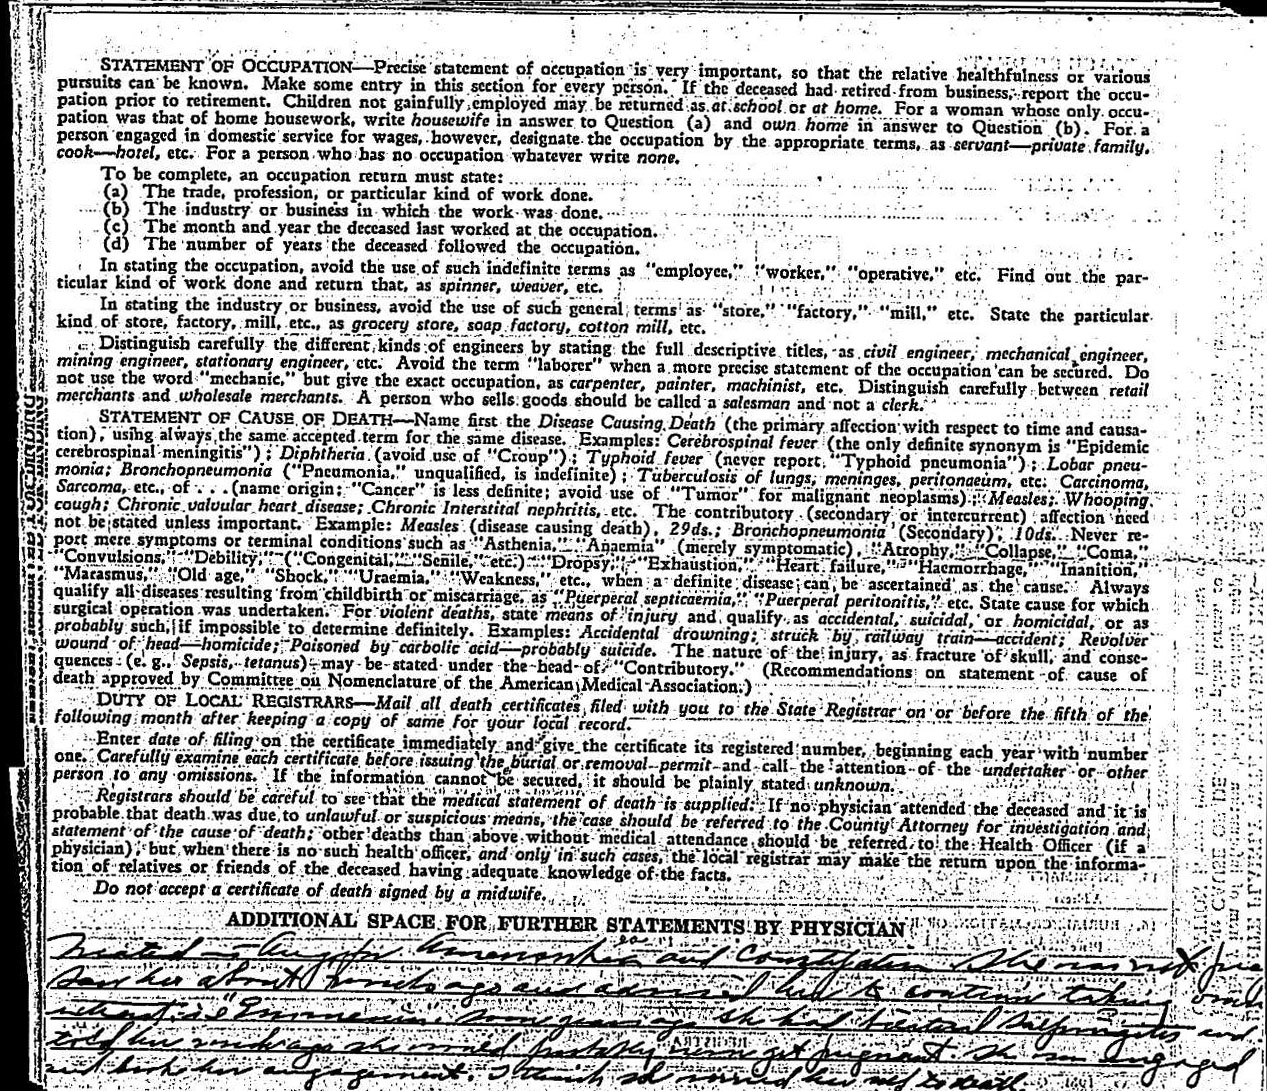 STATEMENT OF OCCUPATION—Precise statement of occupation is very important, so that the relative healthfulness or various
pursuits can be known. Make some entry in this section for every person. If the deceased had retired from business, report the occu-
pation prior to retirement. Children not gainfully employed may be returned as at school or at home. For a woman whose only occu-
pation was that of home housework, write housewife in answer to Question (a) and own home in answer to Question (b). For a
person engaged in domestic service for wages, however, designate the occupation by the appropriate terms, as servant—private family,
cook—hotel, etc. For a person who has no occupation whatever write none.
To be complete, an occupation return must state:
(a) The trade, profession, or particular kind of work done.
(b) The industry or business in which the work was done.
(c) The month and year the deceased last worked at the occupation.
(d) The number of years the deceased followed the occupation.
In stating the occupation, avoid the use of such indefinite terms as "employee," "worker," "operative," etc. Find out the par-
ticular kind of work done and return that, as spinner, weaver, etc.
In stating the industry or business, avoid the use of such general terms as "store," "factory," "mill," etc. State the particular
kind of store, factory, mill, etc., as grocery store, soap factory, cotton mill, etc.
Distinguish carefully the different kinds of engineers by stating the full descriptive titles, as civil engineer, mechanical engineer,
mining engineer, stationary engineer, etc. Avoid the term "laborer" when a more precise statement of the occupation can be secured. Do
not use the word "mechanic," but give the exact occupation, as carpenter, painter, machinist, etc. Distinguish carefully between retail
merchants and wholesale merchants. A person who sells goods should be called a salesman and not a clerk.
STATEMENT OF CAUSE OF DEATH—Name first the Disease Causing Death (the primary affection with respect to time and causa-
tion), using always the same accepted term for the same disease. Examples: Cerebrospinal fever (the only definite synonym is "Epidemic
cerebrospinal meningitis"); Diphtheria (avoid use of "Croup"); Typhoid fever (never report "Typhoid pneumonia"); Lobar pneu-
monia; Bronchopneumonia ("Pneumonia," unqualified, is indefinite); Tuberculosis of lungs, meninges, peritonaeum, etc. Carcinoma,
Sarcoma, etc., of . . . (name origin; "Cancer" is less definite; avoid use of "Tumor" for malignant neoplasms); Measles; Whooping
cough; Chronic valvular heart disease; Chronic Interstital nephritis, etc. The contributory (secondary or intercurrent) affection need
not be stated unless important. Example: Measles (disease causing death), 29ds.; Bronchopneumonia (Secondary), 10ds. Never re-
port mere symptoms or terminal conditions such as "Asthenia," "Anaemia" (merely symptomatic), "Atrophy," "Collapse," "Coma,"
"Convulsions," "Debility," ("Congenital," "Senile," etc.) "Dropsy," "Exhaustion," "Heart failure," "Haemorrhage," "Inanition,"
"Marasmus," "Old age," "Shock," "Uraemia," "Weakness," etc., when a definite disease can be ascertained as the cause. Always
qualify all diseases resulting from childbirth or miscarriage, as "Puerperal septicaemia," "Puerperal peritonitis," etc. State cause for which
surgical operation was undertaken. For violent deaths, state means of injury and qualify as accidental, suicidal, or homicidal, or as
probably such, if impossible to determine definitely. Examples: Accidental drowning; struck by railway train—accident; Revolver
wound of head—homicide; Poisoned by carbolic acid—probably suicide. The nature of the injury, as fracture of skull, and conse-
quences (e. g., Sepsis, tetanus) may be stated under the head of "Contributory." (Recommendations on statement of cause of
death approved by Committee on Nomenclature of the American Medical Association.)
DUTY OF LOCAL REGISTRARS—Mail all death certificates filed with you to the State Registrar on or before the fifth of the
following month after keeping a copy of same for your local record.
Enter date of filing on the certificate immediately and give the certificate its registered number, beginning each year with number
one. Carefully examine each certificate before issuing the burial or removal permit and call the attention of the undertaker or other
person to any omissions. If the information cannot be secured, it should be plainly stated unknown.
Registrars should be careful to see that the medical statement of death is supplied. If no physician attended the deceased and it is
probable that death was due to unlawful or suspicious means, the case should be referred to the County Attorney for investigation and
statement of the cause of death; other deaths than above without medical attendance should be referred to the Health Officer (if a
physician), but when there is no such health officer, and only in such cases, the local registrar may make the return upon the informa-
tion of relatives or friends of the deceased having adequate knowledge of the facts.
Do not accept a certificate of death signed by a midwife.
ADDITIONAL SPACE FOR FURTHER STATEMENTS BY PHYSICIAN
treated in Aug for Amenorrhea and Constipation She was not
saw her about weeks ago and advised her to continue taking
years ago she had bilateral Salpingitis and
told her she would probably never get pregnant. She was engaged
and broke her engagement. I think she worried her self to death.